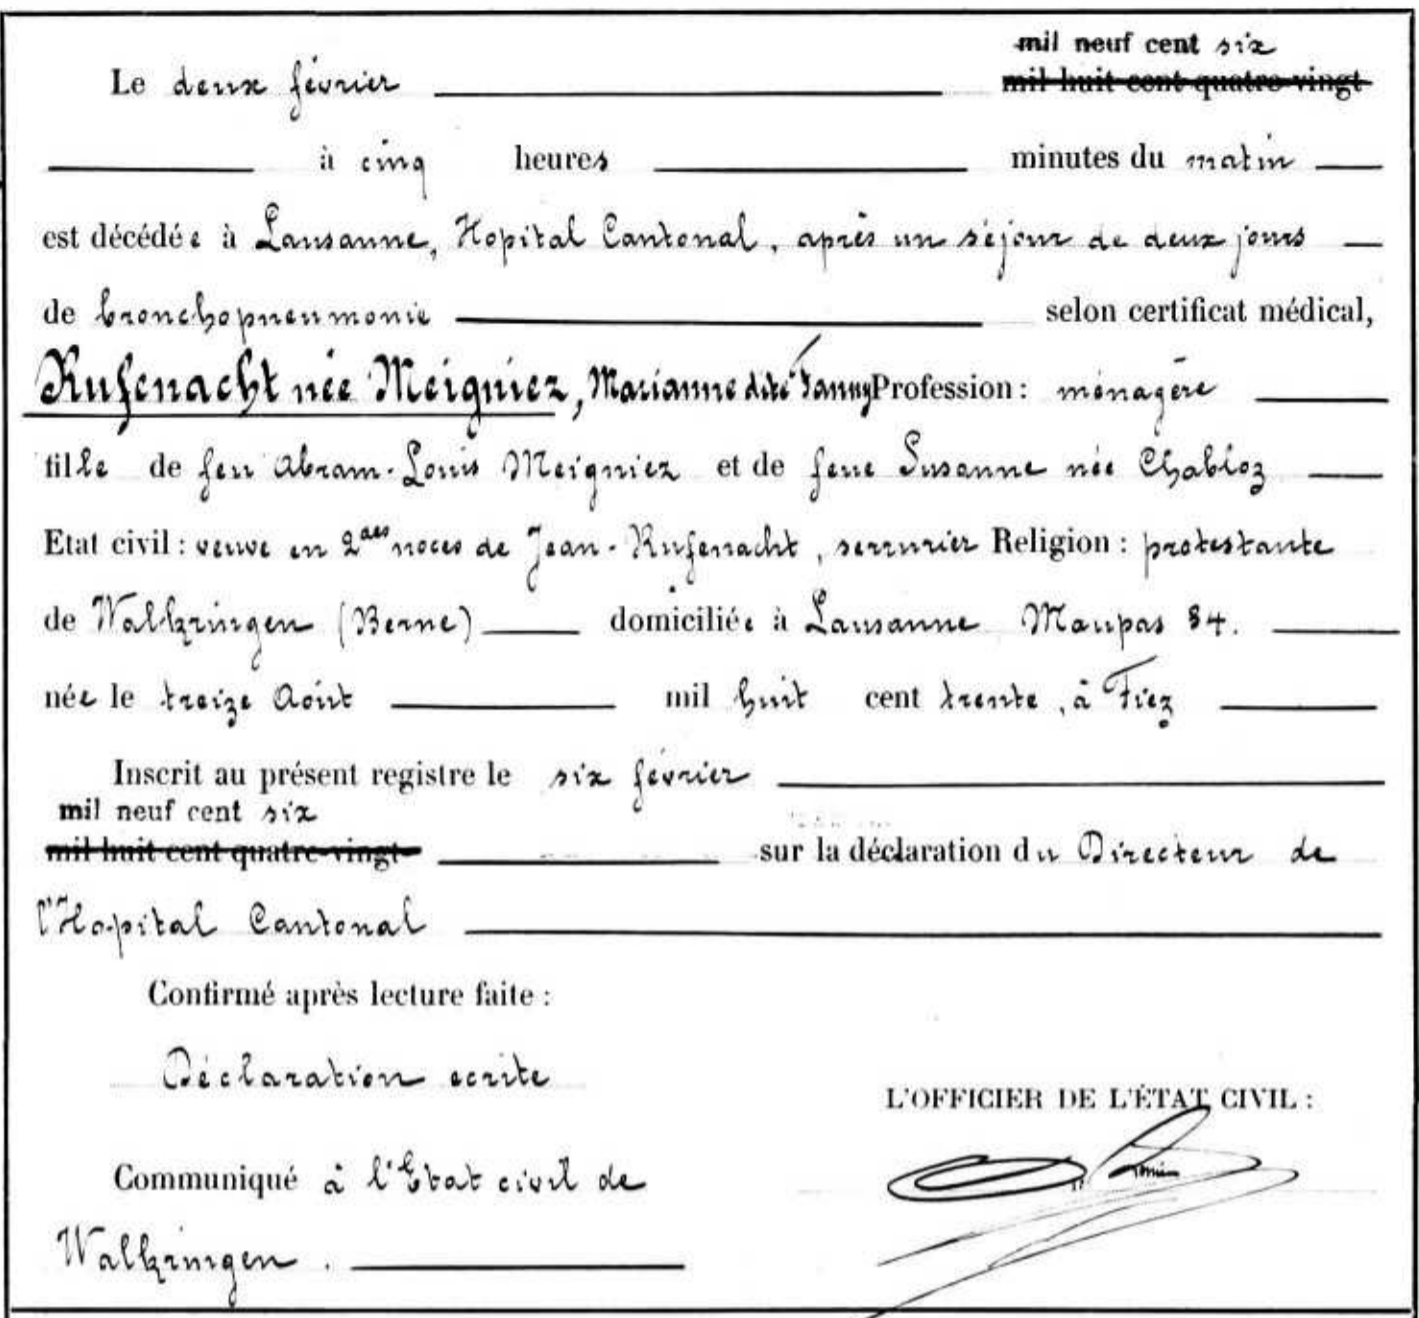 mil neuf cent six
Le deux février mil huit cent quatre-vingt
à cinq heures minutes du matin
est décédée à Lausanne, Hopital Cantonal, après un séjour de deux jours
de bronchopneumonie selon certificat médical,
Rufenacht née Meigniez, Marianne dite Fanny Profession : ménagère
fille de feu Abram-Louis Meigniez et de feue Susanne née Chabloz
Etat civil : veuve en 2des noces de Jean-Rufenacht, serrurier Religion : protestante
de Walkringen (Berne) domiciliée à Lausanne Maupas 84.
née le treize Août mil huit cent trente, à Fiez
Inscrit au présent registre le six février
mil neuf cent six
mil huit cent quatre-vingt- sur la déclaration du Directeur de
l'Hopital Cantonal
Confirmé après lecture faite :
Déclaration ecrite
L'OFFICIER DE L'ÉTAT CIVIL :
Communiqué à l'Etat civil de
Walkringen.